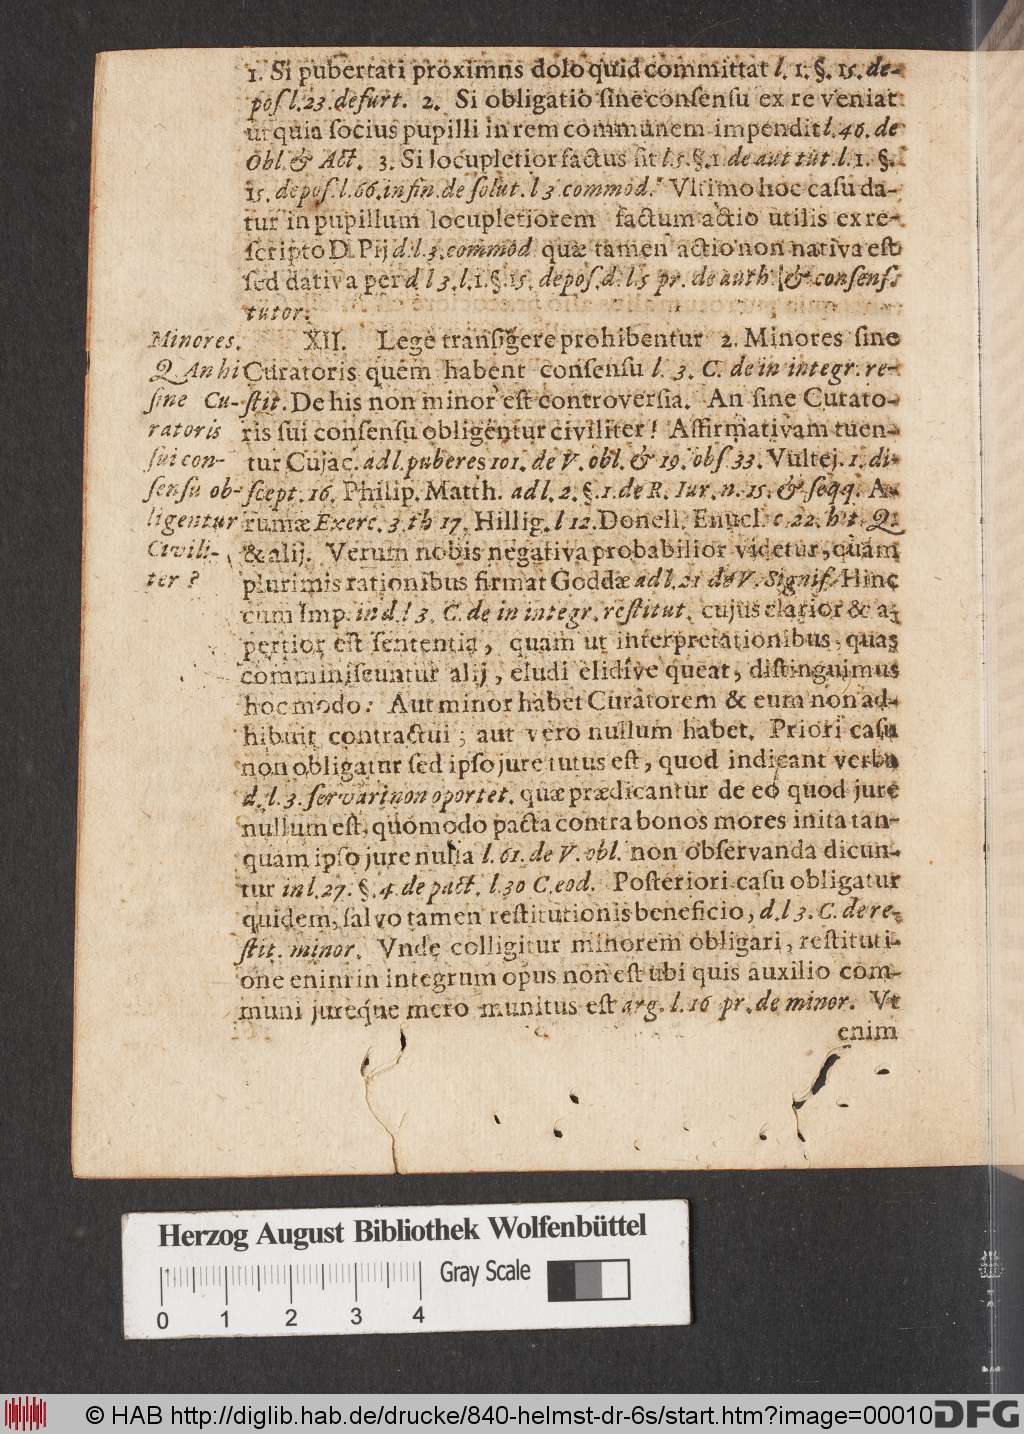 1. Si pubertati proximus dolo quid committat l. 1. §. 15. de-
pos l. 23. de furt. 2. Si obligatio ſine conſenſu ex re veniat
ut quia ſocius pupilli in rem communem impendit l. 46. de
Obl. & Act. 3. Si locupletior factus ſit l. 5. §. 1. de aut tut. l. 1. §.
15. depoſ. l. 66. in fin. de ſolut. l 3 commod. Vltimo hoc caſu da-
tur in pupillum locupletiorem factum actio utilis ex re-
ſcripto D. Pij d. l. 3. commod quæ tamen actio non nativa eſt
ſed dativa per d l 3. l. 1. §. 15. depoſ. d. l. 5 pr. de auth. & conſenſ.
tutor.
Minores.
XII. Lege tranſigere prohibentur 2. Minores ſine
Q. An hi
Curatoris quem habent conſenſu l. 3. C. de in integr. re-
ſine Cu-
ſtit. De his non minor eſt controverſia. An ſine Curato-
ratoris
ris ſui conſenſu obligentur civiliter? Affirmativam tuen-
ſui con-
tur Cujac. ad l. puberes 101. de V. obl. & 19. obſ. 33. Vultej. 1. di-
ſenſu ob-
ſcept. 16. Philip. Matth. ad l. 2. §. 1. de R. Iur. n. 15. & ſeqq. A-
ligentur
rumæ Exerc. 3. th 17. Hillig. l 12. Donell. Enucl. c. 22. h t. Q.
Civili-
& alij. Verum nobis negativa probabilior videtur, quam
ter?
plurimis rationibus firmat Goddæ ad l. 21 de V. Signif. Hinc
cum Imp. in d. l 3. C. de in integr. reſtitut. cujus clarior & a-
pertior eſt ſententia, quam ut interpretationibus, quas
comminiſcuntur alij, eludi elidive queat, diſtinguimus
hoc modo: Aut minor habet Curatorem & eum non ad-
hibuit contractui; aut vero nullum habet. Priori caſu
non obligatur ſed ipſo jure tutus eſt, quod indicant verba
d. l. 3. ſervari non oportet. quæ prædicantur de eo quod jure
nullum eſt, quomodo pacta contra bonos mores inita tan-
quam ipſo jure nulla l. 61. de V. obl. non obſervanda dicun-
tur in l. 27. §. 4. de pact. l. 30 C. eod. Poſteriori caſu obligatur
quidem, ſalvo tamen reſtitutionis beneficio, d. l 3. C. de re-
ſtit. minor. Vnde colligitur minorem obligari, reſtituti-
one enim in integrum opus non eſt ubi quis auxilio com-
muni jureque mero munitus eſt arg. l. 16 pr. de minor. Vt
enim
Herzog August Bibliothek Wolfenbüttel
Gray Scale
0 1 2 3 4
© HAB http://diglib.hab.de/drucke/840-helmst-dr-6s/start.htm?image=00010
DFG